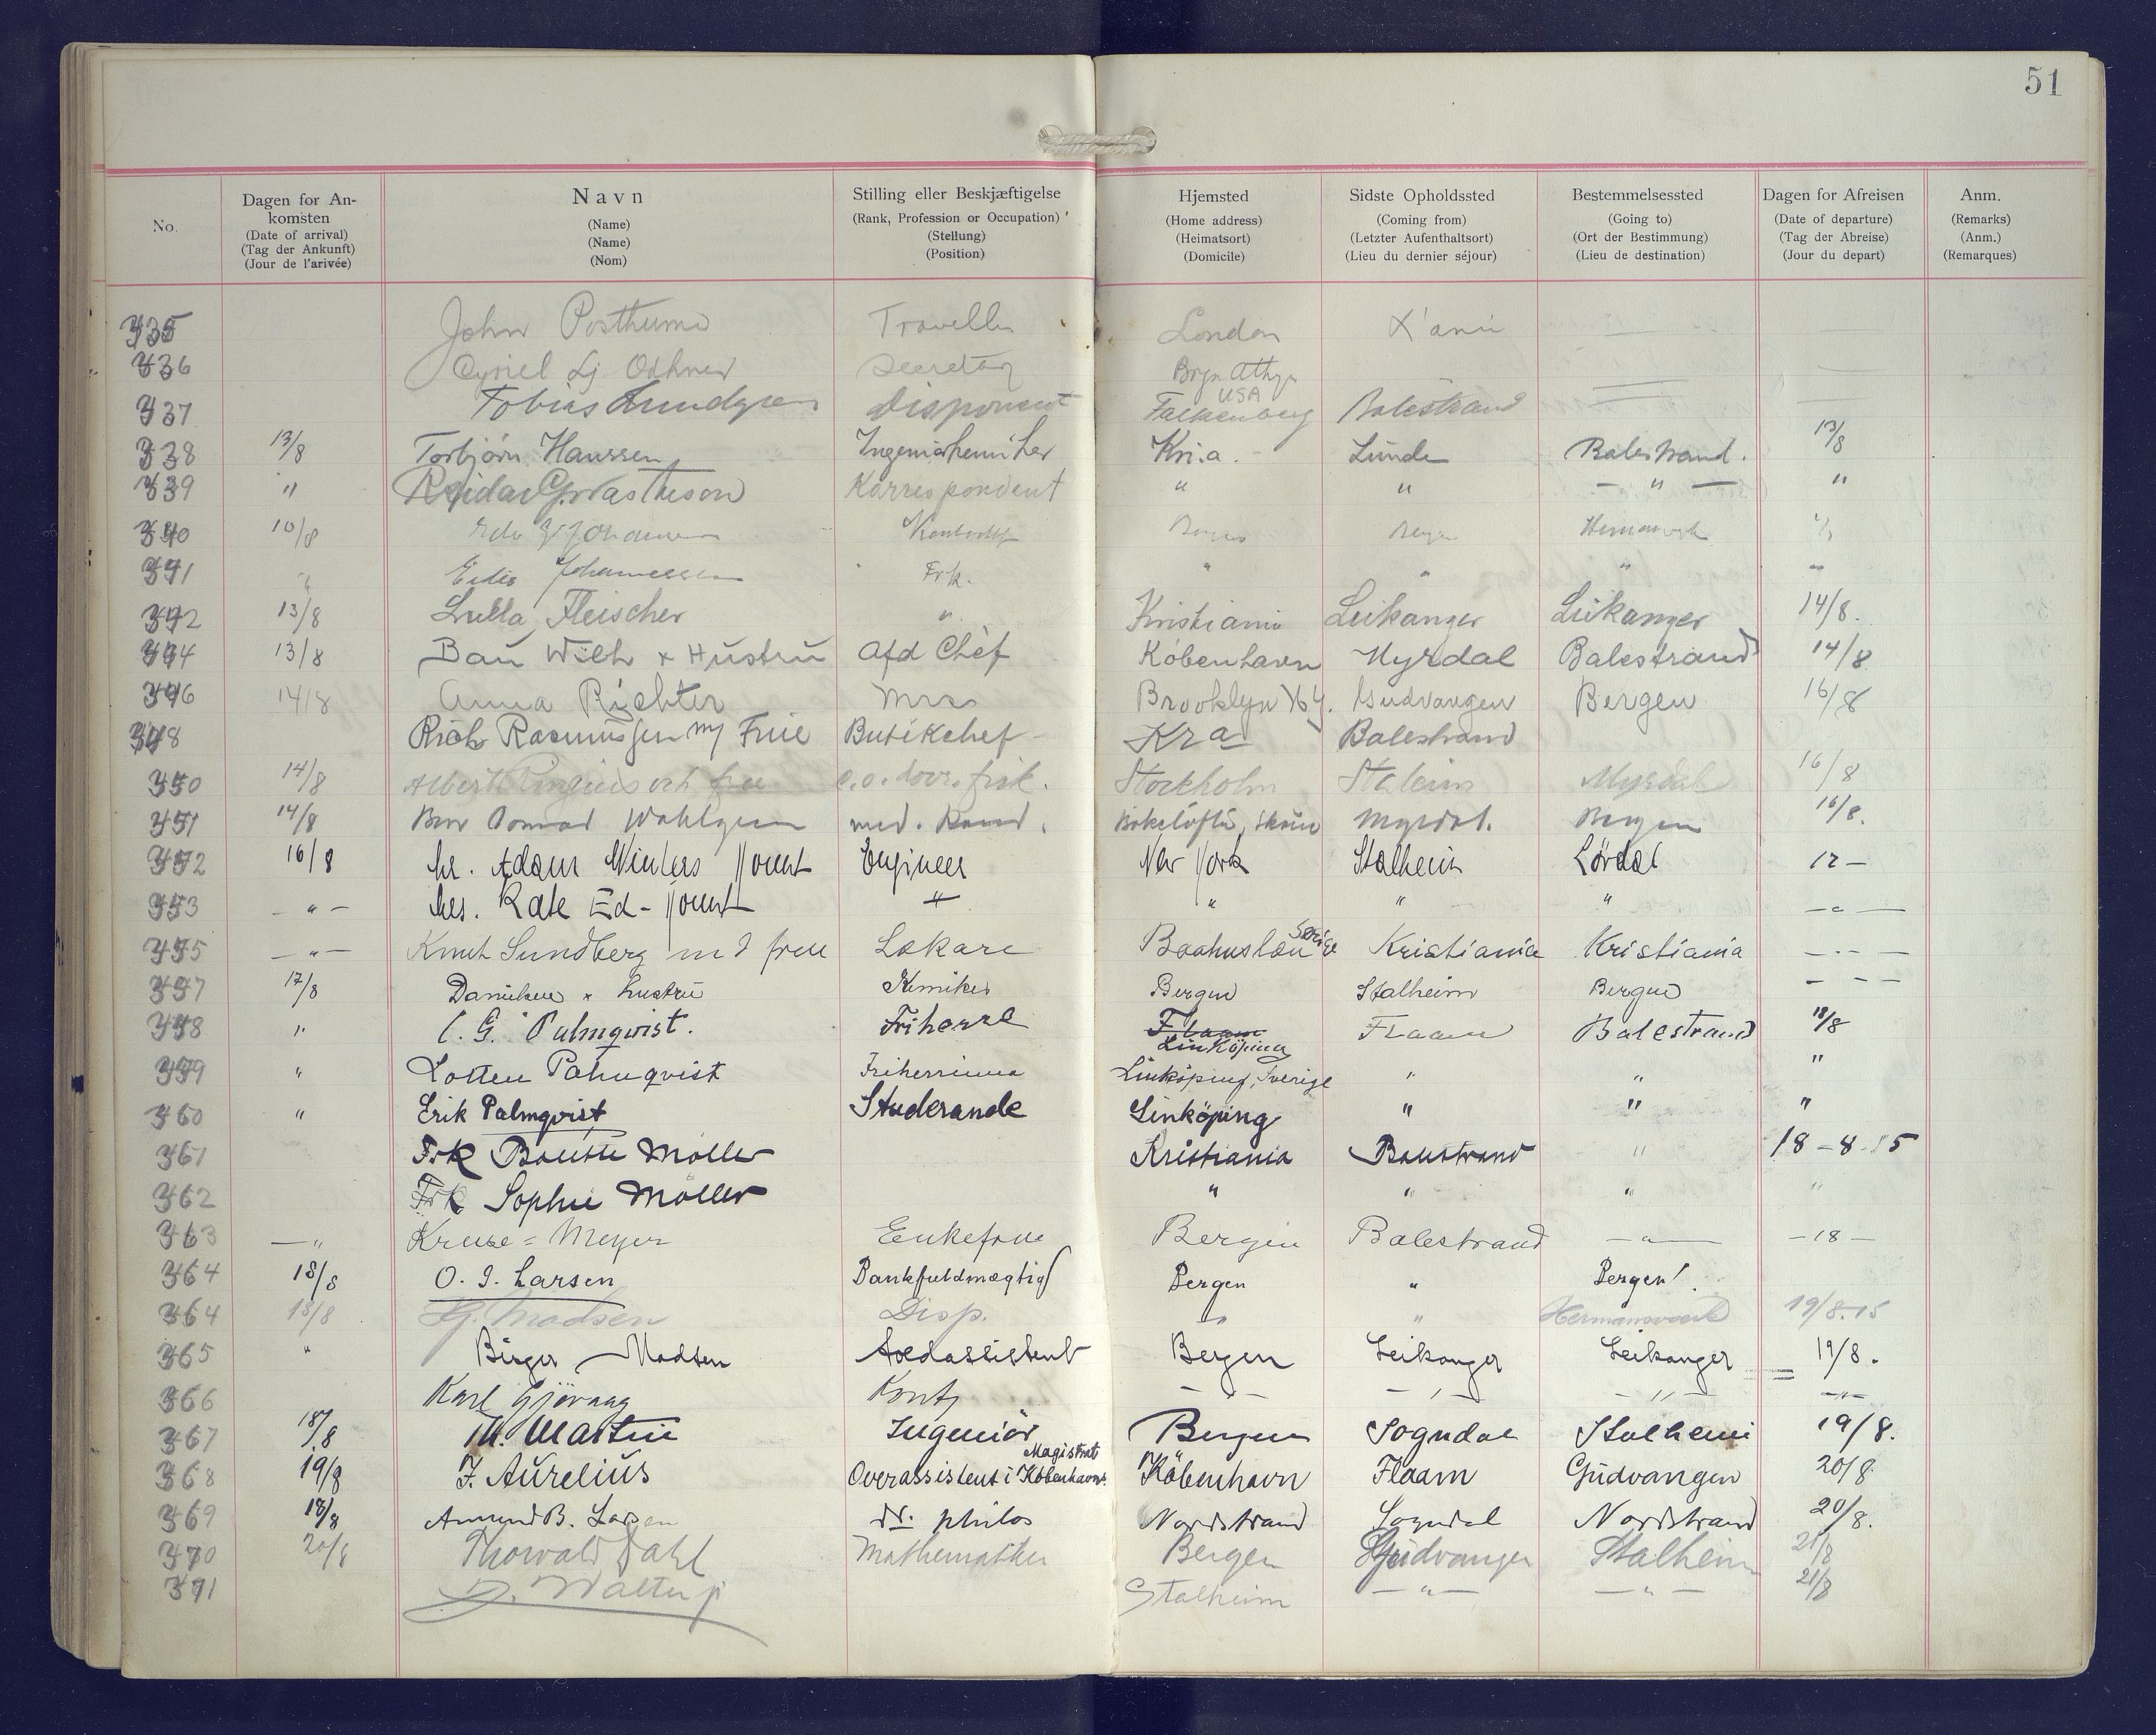 51
No.
Dagen for An-
komsten
(Date of arrival)
(Tag der Ankunft)
(Jour de l'arivée)
Navn
(Name)
(Name)
(Nom)
Stilling eller Beskjæftigelse
(Rank, Profession or Occupation)
(Stellung)
(Position)
Hjemsted
(Home address)
(Heimatsort)
(Domicile)
Sidste Opholdssted
(Coming from)
(Letzter Aufenthaltsort)
(Lieu du dernier séjour)
Bestemmelsessted
(Going to)
(Ort der Bestimmung)
(Lieu de destination)
Dagen for Afreisen
(Date of departure)
(Tag der Abreise)
(Jour du depart)
Anm.
(Remarks)
(Anm.)
(Remarques)
335 John Posthuma London
336 Bryn Athyn
USA
337 Tobias Lundgren Disponent Falkenberg Balestrand
338 13/8 Torbjörn Hanssen Kri.a. Lunde Balestrand. 13/8
339 " Korrespondent " " — " — "
340 10/8 Bergen Bergen
341 " Johannessen Frk. " " "
342 13/8 Lulla Fleischer " Kristiania Leikanger Leikanger 14/8.
344 13/8 Bau Wilh + Hustru Afd Chèf Köbenhavn Myrdal Balestrand 14/8
346 14/8 Anna Richter Miss Brooklyn N.Y. Gudvangen Bergen 16/8
348 Rich Rasmussen m/ Frue Butikchef Kra Balestrand
350 14/8 Albert och fru Stockholm Staleim Myrdal 16/8
351 14/8 Wahlgren med. Kand. Myrdal. Bergen 16/8.
352 16/8 Mr. Adam Winters Yount Engineer New York Stalheim Lördal 17 —
353 — " — Mrs. Kate Ed- Yount " " " "
355 — " — Knut Sundberg med fru Läkare Boahuslän Sverige Kristiania Kristiania — " —
357 17/8 Danielsen + hustru Kemiker Bergen Stalheim Bergen — " —
358 " C. G. Palmqvist. Friherre Linköping Flaam Balestrand 18/8
359 " Lotten Palmqvist Friherrinna Linköping, Sverige " " "
360 " Erik Palmqvist Studerande Linköping " " "
361 Frk Möller Kristiania Balestrand " 18-8-15
362 Frk Sophie Möller " " " "
363 — " Kruse = Meyer Enkefrue Bergen Balestrand — " — — 18 —
364 18/8 O. J. Larsen Bankfuldmægtig Bergen " Bergen!
364 18/8 G. Madsen Disp. " " Hermansverk 19/8-15
365 " Birger Madsen Bergen Leikanger Leikanger 19/8.
366 Karl Gjövaag — " — — " — — " — — " —
367 18/8 M. Martin Ingeniör Bergen Sogndal Stalheim 19/8.
368 19/8 F. Aurelius Overassistent i Köbenhavns Magistrat Köbenhavn Flaam Gudvangen 20/8
369 18/8 Amund B. Larsen dr. philos Nordstrand Sogndal Nordstrand 20/8.
370 20/8 Thorvald Dahl Mathematiker Bergen Gudvangen Stalheim 21/8
371 Stalheim — " — — " — 21/8